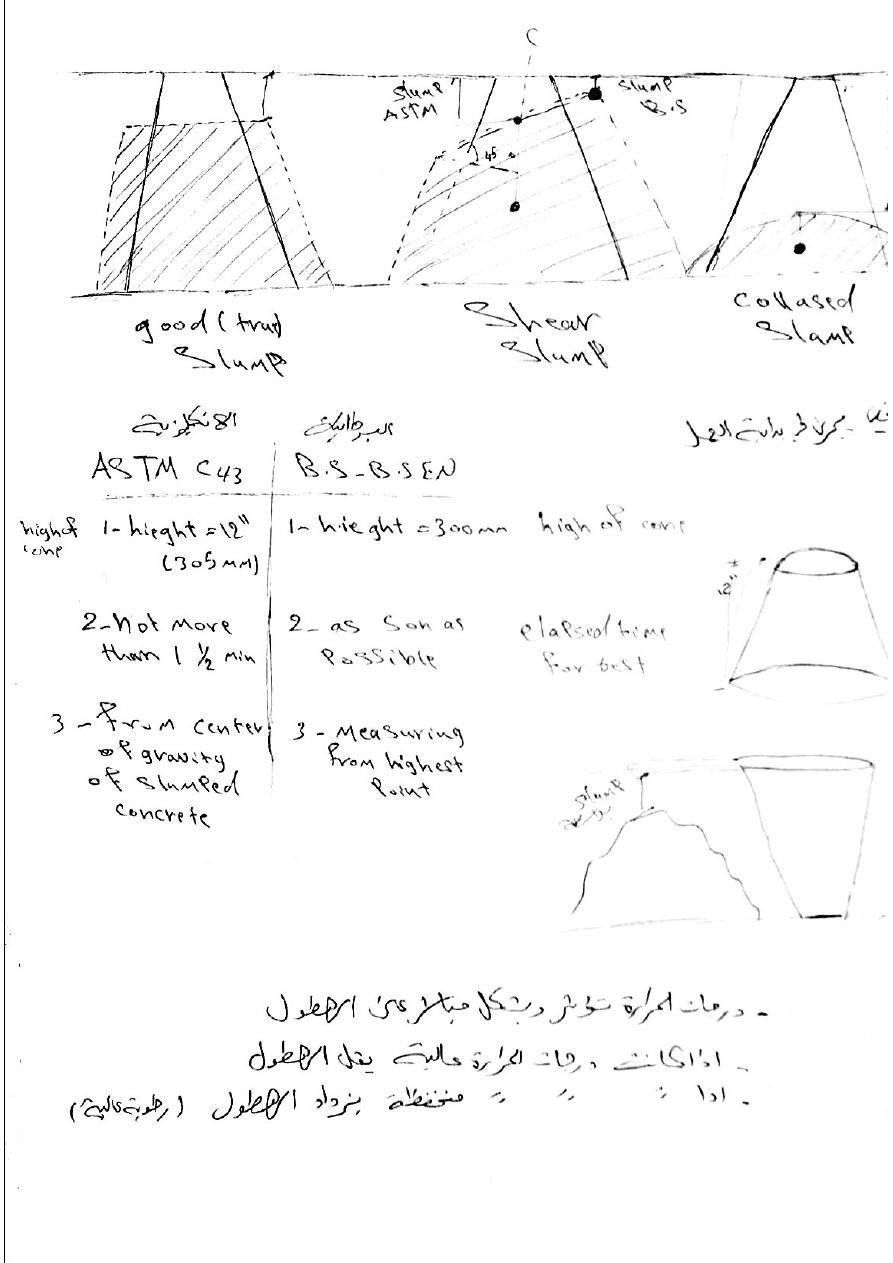 C
slump
ASTM
slump
B.S
45
good (true)
Slump
Shear
Slump
Collased
Slamp
الانكليزية
البريطانية
بداية العمل
ASTM C43
B.S - B.S EN
high of
cone
1- hieght = 12"
(305 MM)
1- hieght = 300 mm
high of cone
12"
2- Not more
than 1 1/2 Min
2- as son as
possible
elapsed time
for test
3 - from center
of gravity
of slumped
concrete
3 - Measuring
from highest
point
slump
- درجات الحرارة تؤثر وبشكل مباشر على الهطول
- اذا كانت درجات الحرارة عالية يقل الهطول
- اذا " " " منخفظة يزداد الهطول (رطوبة عالية)